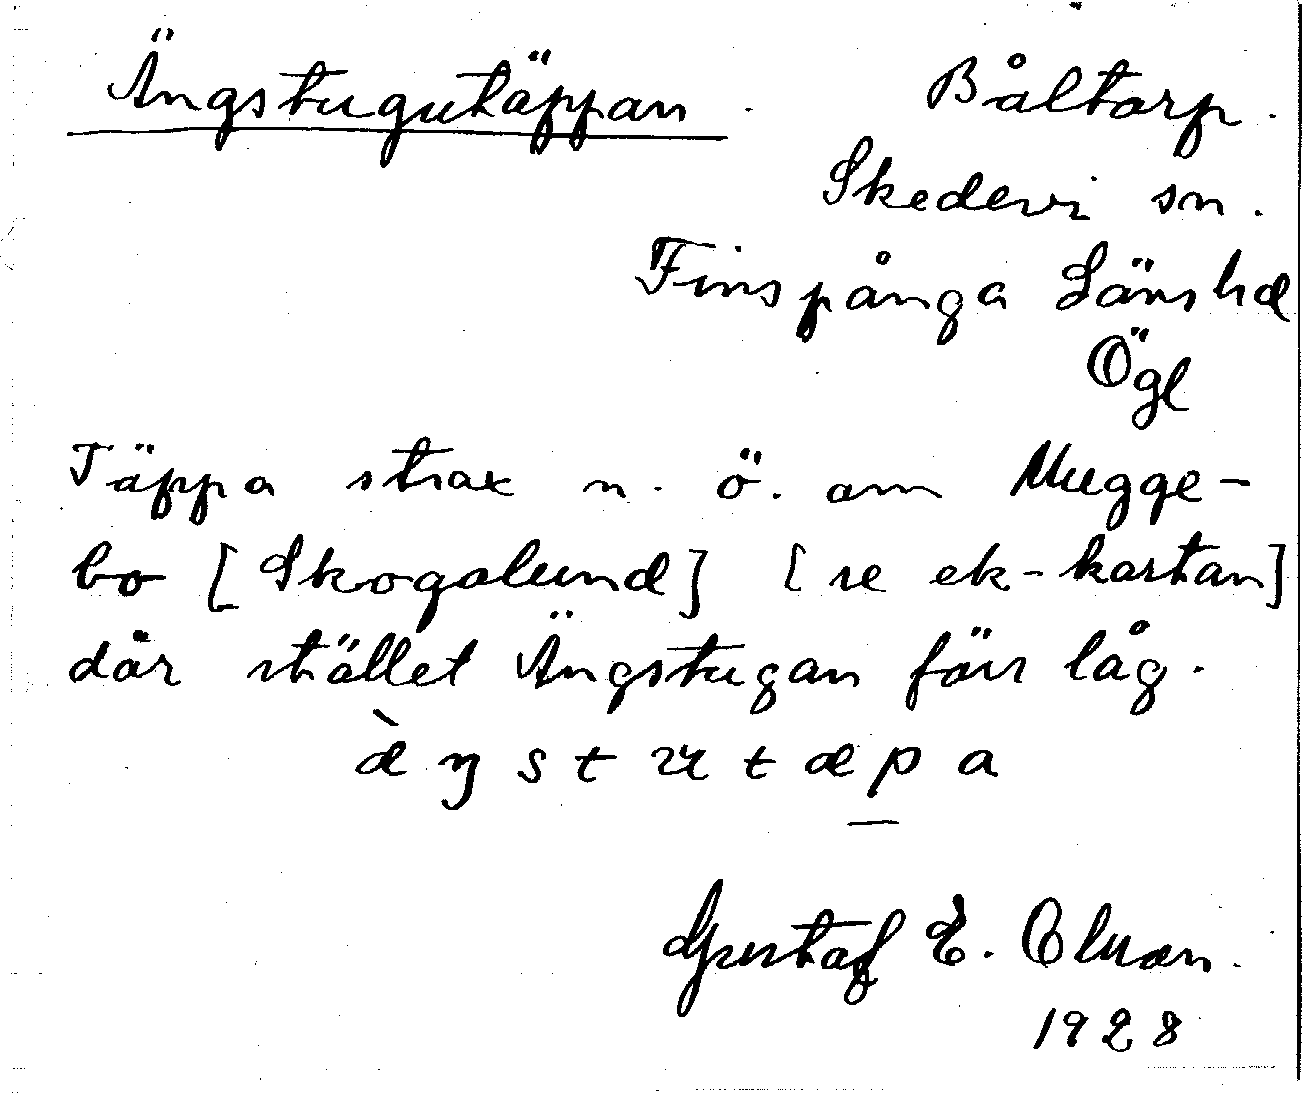 Ängstugutäppan. Båltorp.
Skedevi sn.
Finspånga Länshd
Ögl
Täppa strax n. ö. om Mugge-
bo [Skogalund] [se ek-kartan]
där stället Ängstugan förr låg.
æ̀ŋstututæpa
Gustaf E. Olsson.
1928